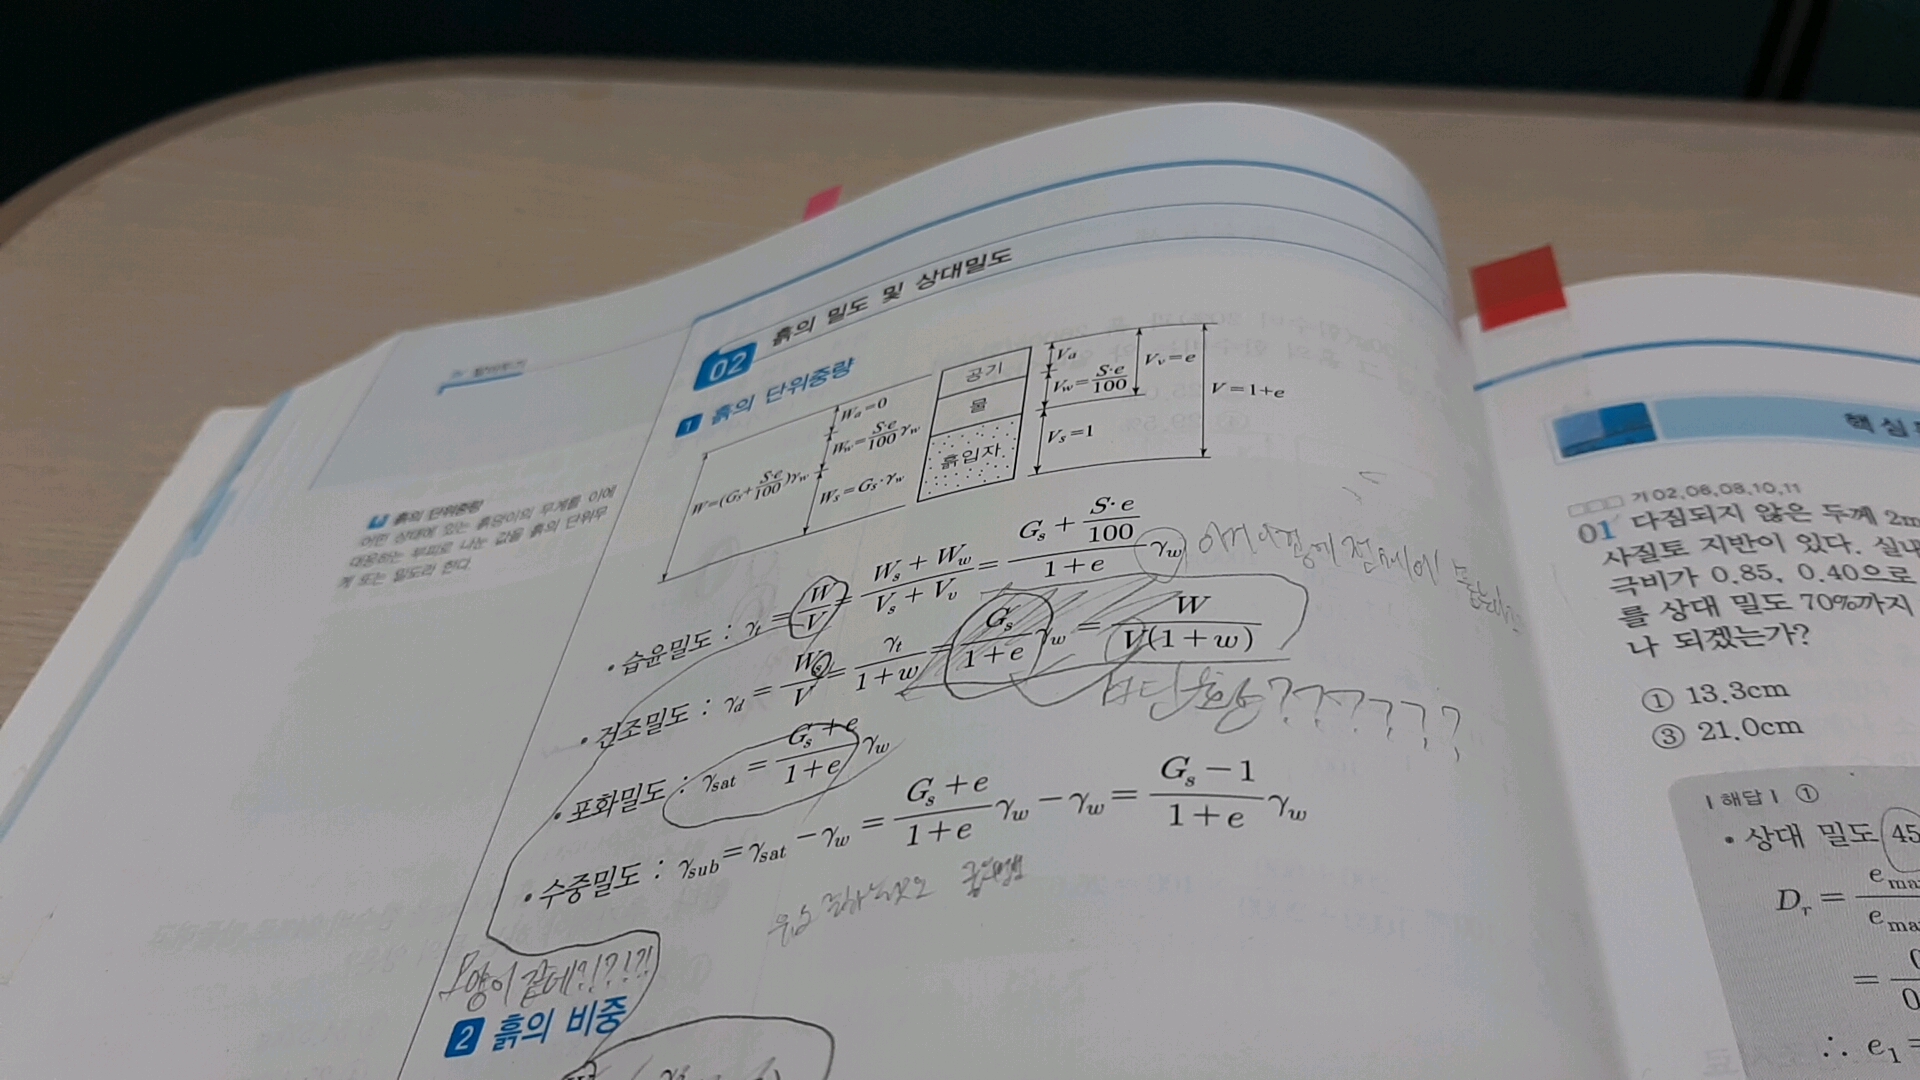 02 흙의 밀도 및 상대밀도
1 흙의 단위중량
흙의 단위중량
어떤 상태에 있는 흙덩이의 무게를 이에
대응하는 부피로 나눈 값을 흙의 단위무
게 또는 밀도라 한다.
W=(Gs+S·e/100)γw
Wa=0
Ww=S·e/100 γw
Ws=Gs·γw
공기
물
흙입자
Va
Vw=S·e/100
Vs=1
Vv=e
V=1+e
• 습윤밀도 : γt = W/V = (Ws+Ww)/(Vs+Vv) = (Gs+S·e/100)/(1+e) γw
• 건조밀도 : γd = Ws/V = γt/(1+w) = Gs/(1+e) γw = W/(V(1+w))
??????
• 포화밀도 : γsat = (Gs+e)/(1+e) γw
• 수중밀도 : γsub = γsat − γw = (Gs+e)/(1+e) γw − γw = (Gs−1)/(1+e) γw
모양이 같네?!?!?!
2 흙의 비중
핵심
기02,06,08,10,11
01 다짐되지 않은 두께 2m
사질토 지반이 있다. 실내
극비가 0.85, 0.40으로
를 상대 밀도 70%까지
나 되겠는가?
① 13.3cm
③ 21.0cm
| 해답 | ①
• 상대 밀도 45
Dr = e max
e ma
= 0
0
∴ e1 =